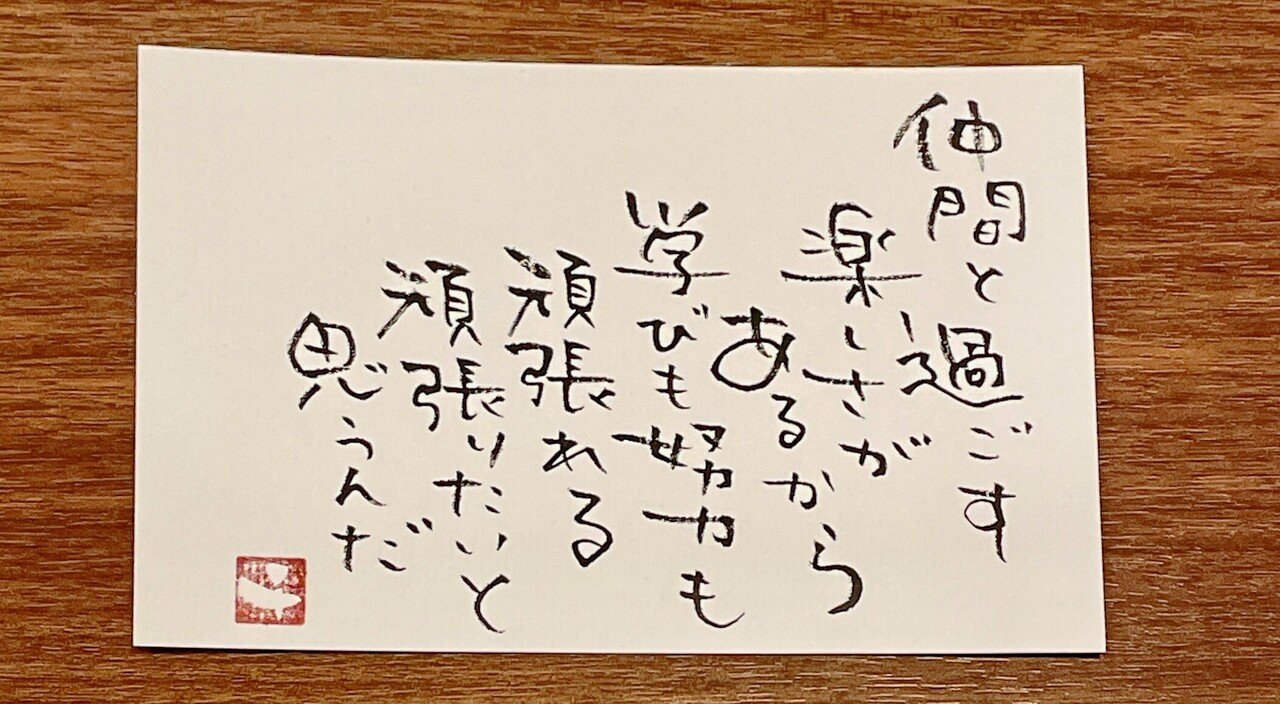 仲間と過ごす
楽しさが
あるから
学びも努力も
頑張れる
頑張りたいと
思うんだ